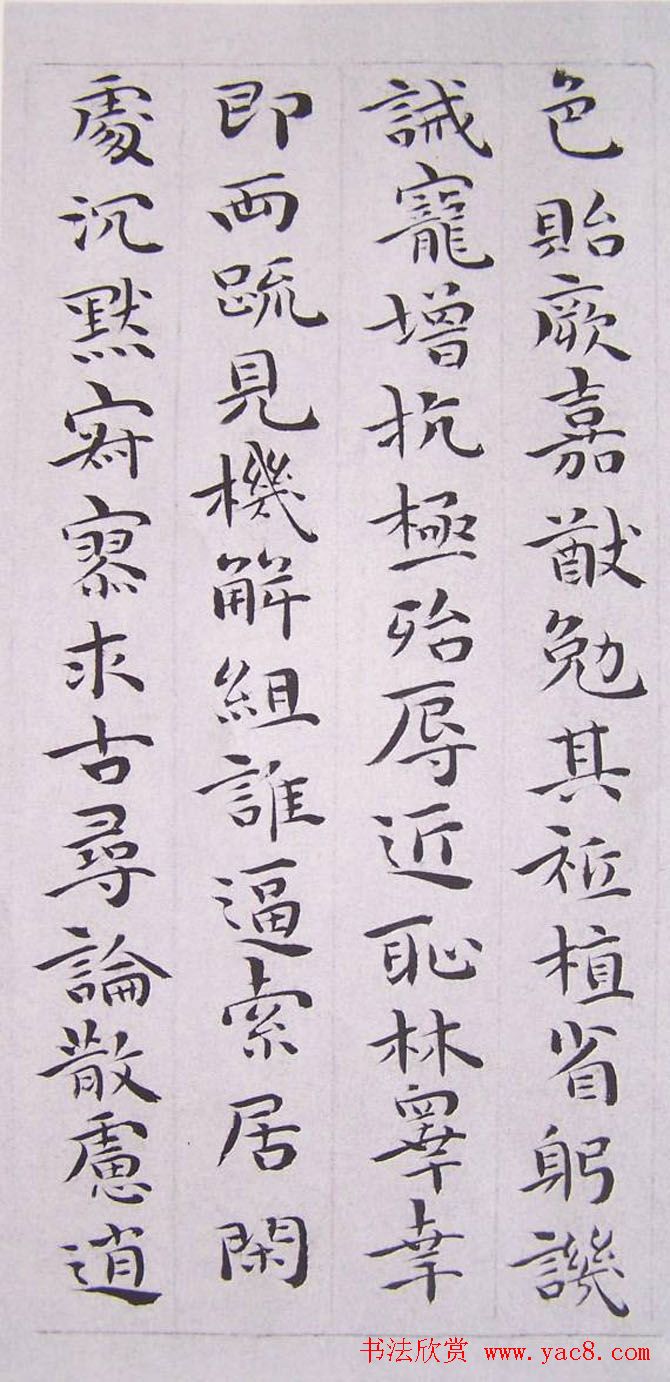 色貽厥嘉猷勉其祗植省躬譏
誡寵增抗極殆辱近恥林睾幸
即兩疏見機解組誰逼索居閑
處沉默寂寥求古尋論散慮逍
书法欣赏 www.yac8.com